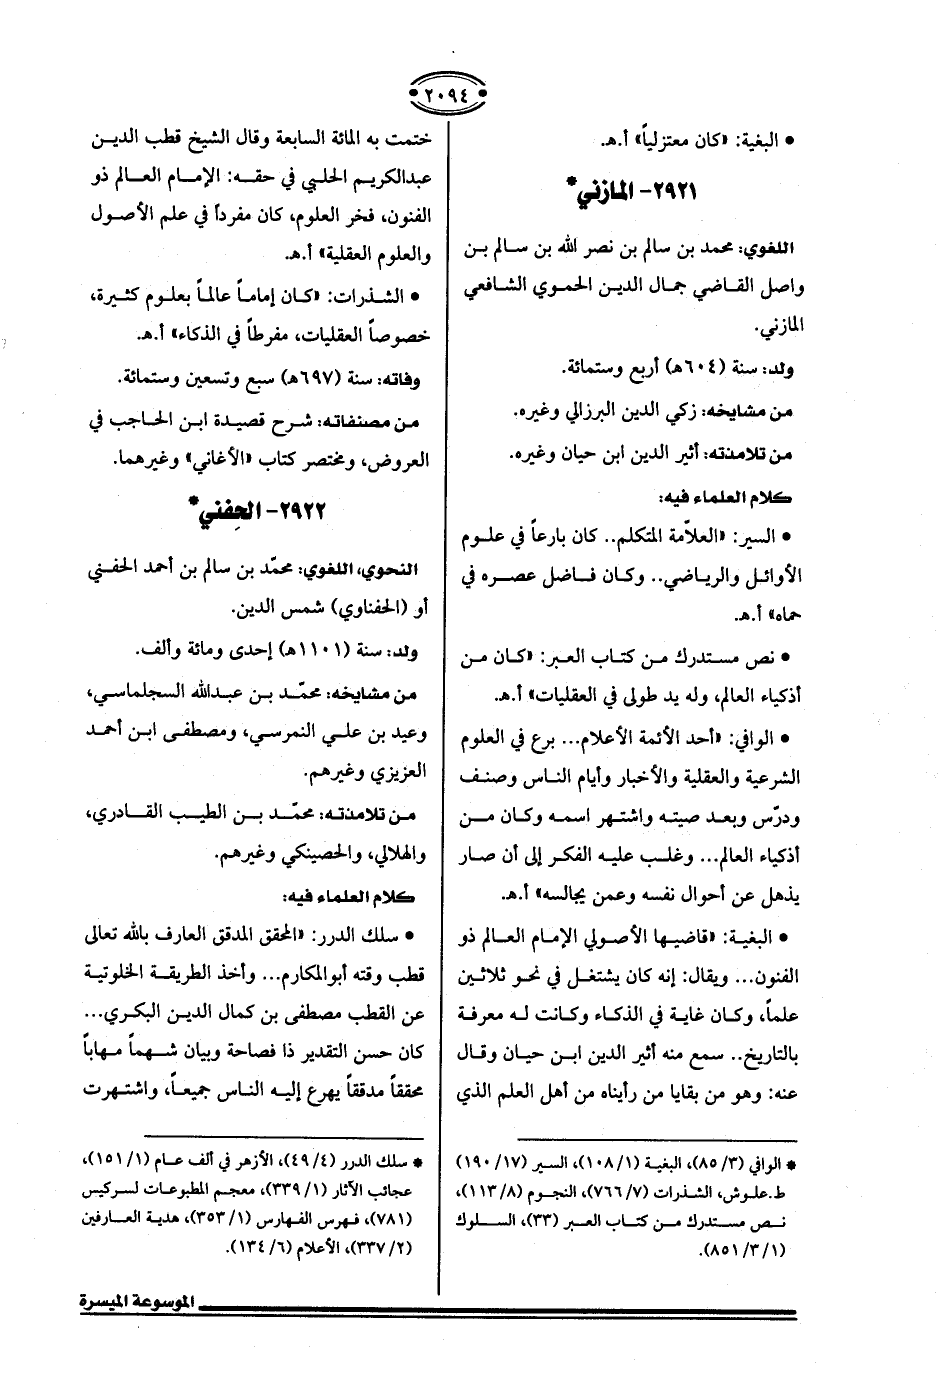 ٢٠٩٤
• البغية: «كان معتزلياً» أ.هـ.
٢٩٢١- المازني*
اللغوي: محمد بن سالم بن نصر الله بن سالم بن
واصل القاضي جمال الدين الحموي الشافعي
المازني.
ولد: سنة (٦٠٤هـ) أربع وستمائة.
من مشايخه: زكي الدين البرزالي وغيره.
من تلامذته: أثير الدين ابن حيان وغيره.
كلام العلماء فيه:
• السير: «العلاّمة المتكلم.. كان بارعاً في علوم
الأوائل والرياضي.. وكان فاضل عصره في
حماه» أ.هـ.
• نص مستدرك من كتاب العبر: «كان من
أذكياء العالم، وله يد طولى في العقليات» أ.هـ.
• الوافي: «أحد الأئمة الأعلام... برع في العلوم
الشرعية والعقلية والأخبار وأيام الناس وصنف
ودرّس وبعد صيته واشتهر اسمه وكان من
أذكياء العالم... وغلب عليه الفكر إلى أن صار
يذهل عن أحوال نفسه وعمن يجالسه» أ.هـ.
• البغية: «قاضيها الأصولي الإمام العالم ذو
الفنون... ويقال: إنه كان يشتغل في نحو ثلاثين
علماً، وكان غاية في الذكاء وكانت له معرفة
بالتاريخ.. سمع منه أثير الدين ابن حيان وقال
عنه: وهو من بقايا من رأيناه من أهل العلم الذي
* الوافي (٨٥/٣)، البغية (١٠٨/١)، السير (١٩٠/١٧)
ط.علوش، الشذرات (٧٦٦/٧)، النجوم (١١٣/٨)،
نص مستدرك من كتاب العبر (٣٣)، السلوك
(٨٥١/٣/١).
ختمت به المائة السابعة وقال الشيخ قطب الدين
عبدالكريم الحلبي في حقه: الإمام العالم ذو
الفنون، فخر العلوم، كان مفرداً في علم الأصول
والعلوم العقلية» أ.هـ.
• الشذرات: «كان إماماً عالماً بعلوم كثيرة،
خصوصاً العقليات، مفرطاً في الذكاء» أ.هـ.
وفاته: سنة (٦٩٧هـ) سبع وتسعين وستمائة.
من مصنفاته: شرح قصيدة ابن الحاجب في
العروض، ومختصر كتاب «الأغاني» وغيرهما.
٢٩٢٢- الحِفني*
النحوي، اللغوي: محمّد بن سالم بن أحمد الحفني
أو (الحفناوي) شمس الدين.
ولد: سنة (١١٠١هـ) إحدى ومائة وألف.
من مشايخه: محمّد بن عبدالله السجلماسي،
وعيد بن علي النمرسي، ومصطفى ابن أحمد
العزيزي وغيرهم.
من تلامذته: محمّد بن الطيب القادري،
والهلالي، والحصينكي وغيرهم.
كلام العلماء فيه:
• سلك الدرر: «المحقق المدقق العارف بالله تعالى
قطب وقته أبوالمكارم... وأخذ الطريقة الخلوتية
عن القطب مصطفى بن كمال الدين البكري...
كان حسن التقدير ذا فصاحة وبيان شهماً مهاباً
محققاً مدققاً يهرع إليه الناس جميعاً، واشتهرت
* سلك الدرر (٤٩/٤)، الأزهر في ألف عام (١٥١/١)،
عجائب الآثار (٣٣٩/١)، معجم المطبوعات لسركيس
(٧٨١)، فهرس الفهارس (٣٥٣/١)، هدية العارفين
(٣٣٧/٢)، الأعلام (١٣٤/٦).
الموسوعة الميسرة